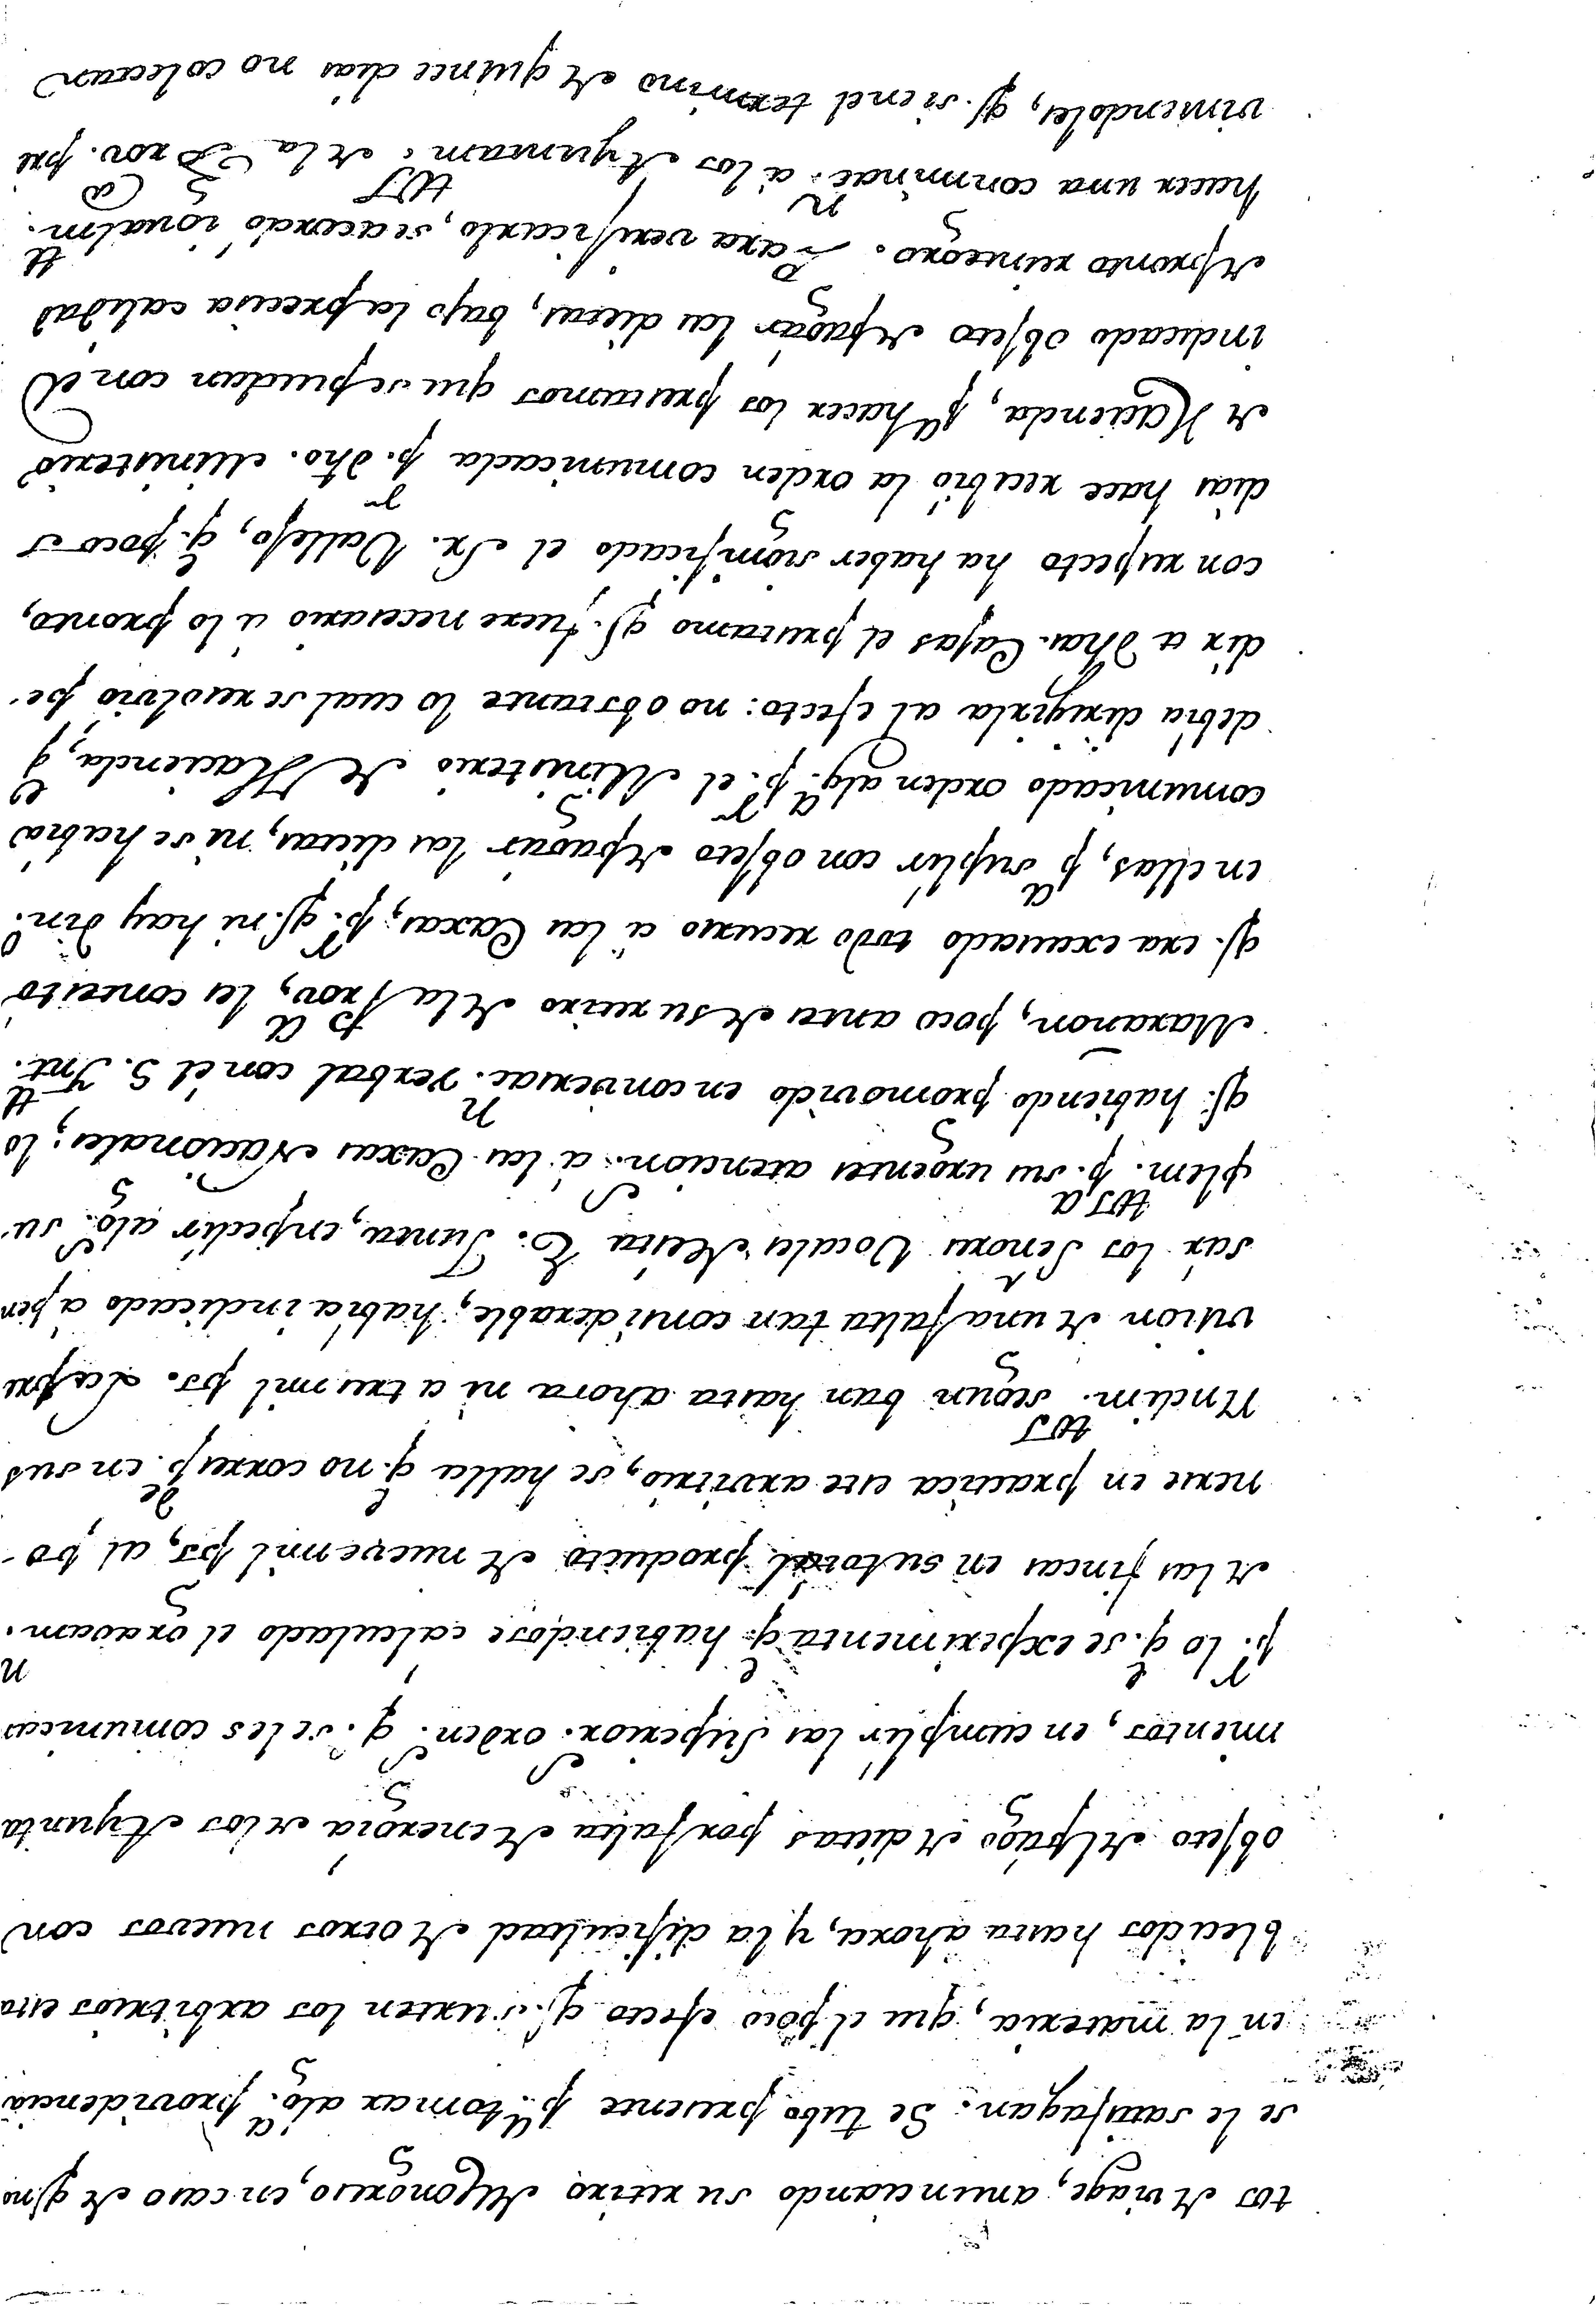 tos de viage, anunciando su retiro del Congreso, en caso de q.e no
se le satisfagan. Se tubo presente p.a tomar alg.a providencia
en la materia, que el poco efecto q.e surten los arbitrios esta
blecidos hasta ahora, y la dificultad de otros nuevos con
objeto del pago de dietas por falta de energia de los Ayunta
mientos, en cumplir las Superior.s orden.s q.e se les comunican
p.r lo q.e se experimenta q.e habiendose calculado el gravam.n
de las fincas en su total producto de nueve mil p.s, al po-
nerse en practica este arvitrio, se halla q.e no corresp.de en sus
Rndim.tos segun ban hasta ahora ni a tres mil p.s. La pre
vision de una falta tan considerable, habia indicado á pen
sár los Señores Vocales de esta E. Junta, en pedir alg.s su
plem.tos p.a sus urgentes atencion.s á las Caxas Nacionales; lo
q.e habiendo promovido en conversac.n verbal con el S. Int.te
Maxanon, poco antes de su retiro de la Prov.a, les contestó
q.e era escusado todo recurso á las Caxas; p.r q.e ni hay din.o
en ellas, p.a suplir con objeto de pagár las dietas, ni se habia
comunicado orden alg.a p.r el Ministerio de Hacienda, q.e
debia dirigirla al efecto: no obstante lo cual se resolvió pe
dir a dhas. Cajas el prestamo q.e fuere necesario á lo pronto,
con respecto ha haber significado el Sr. Vallejo, q.e pocos
dias hace recibió la orden comunicada p.r dho. Ministerio
de Hacienda, p.a hacer los prestamos que se puedan con el
indicado objeto de pagár las dietas, bajo la precisa calidad
de pronto reintegro. Para verificarlo, se acordó igualm.te
hacer una conminac.n á los Ayuntam.tos de la Prov.a pre
viniendoles, q.e si en el termino de quince dias no colectan